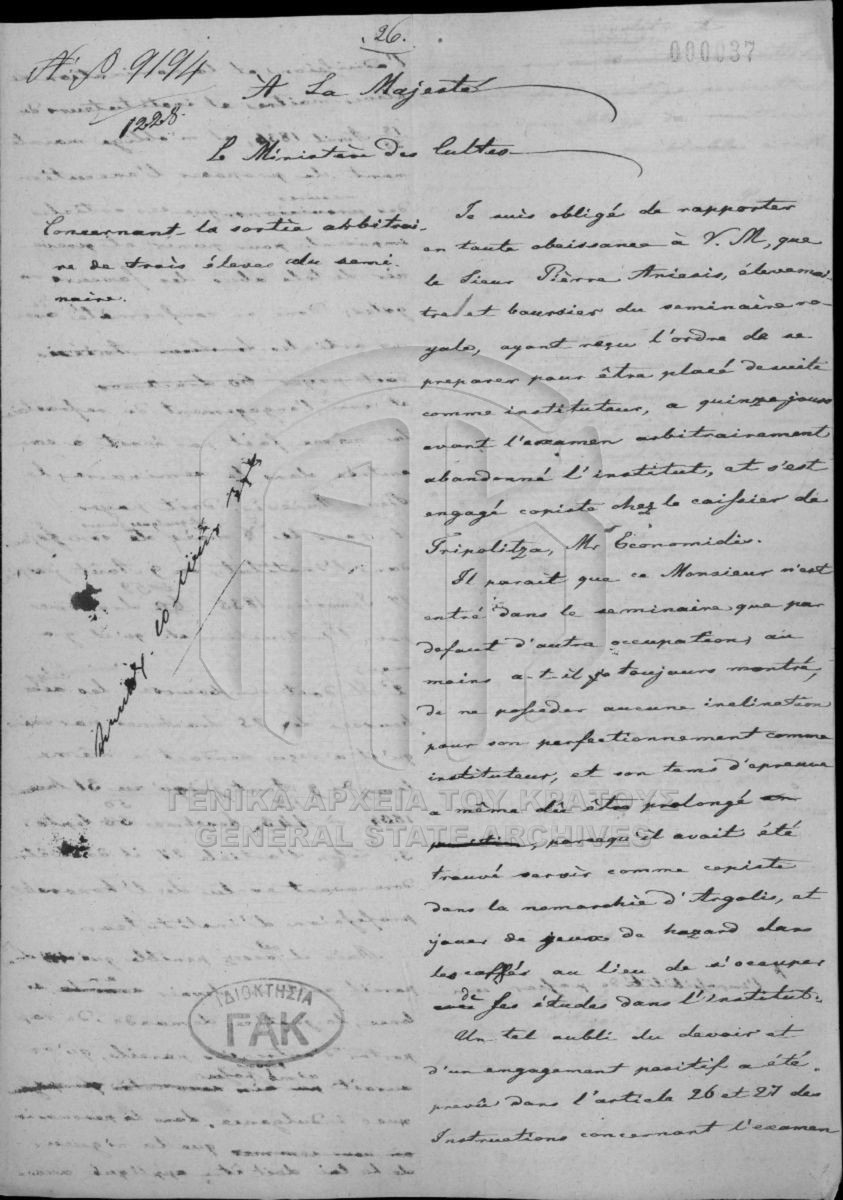 26.
000037
No. 9194
1228.
A La Majesté
Le Ministère des Cultes
Concernant la sortie arbitrai-
re de trois élèves du semi-
naire.
Je suis obligé de rapporter
en toute obeissance à V. M, que
le Sieur Pièrre Aniesis, élevemai-
tre et boursier du seminaire ro-
yale, ayant reçu l'ordre de se
preparer pour être placé desuite
comme instituteur, a quinze jours
avant l'examen arbitrairement
abandonné l'institut, et s'est
engagé copiste chez le caissier de
Tripolitza, Mr Economidis.
Il parait que ce Monsieur n'est
entré dans le seminaire que par
defaut d'autre occupation, au
moins a-t-il toujours montré,
de ne posseder aucune inclination
pour son perfectionnement comme
instituteur, et son tems d'epreuve
a même dû être prolongé
, parcequ'il avait été
trouvé servir comme copiste
dans la nomarchie d'Argolis, et
jouer de jeux de hazard dans
les caffés au lieu de s'occuper
de ses études dans l'institut.
Un tel oubli du devoir et
d'un engagement positif a été
prevû dans l'article 26 et 27 des
Instructions concernant l'examen
ΓΕΝΙΚΑ ΑΡΧΕΙΑ ΤΟΥ ΚΡΑΤΟΥΣ
GENERAL STATE ARCHIVES
ΙΔΙΟΚΤΗΣΙΑ
ΓΑΚ